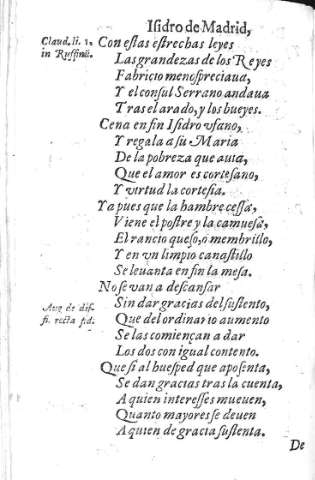 Isidro de Madrid,
Claud. li. 1.
in Ruffinũ.
Con estas estrechas leyes
Las grandezas de los Reyes
Fabricio menospreciaua,
Y el consul Serrano andaua
Tras el arado, y los bueyes.
Cena en fin Isidro vfano,
Y regala a su Maria
De la pobreza que auia,
Que el amor es cortesano,
Y virtud la cortesia.
Ya pues que la hambre cessa,
Viene el postre y la camuesa,
El rancio queso, o membrillo,
Y en vn limpio canastillo
Se leuanta en fin la mesa.
No se van a descansar
Aug. de dif-
fi. recta
Sin dar gracias del sustento,
Que del ordinario aumento
Se las comiençan a dar
Los dos con igual contento.
Que si al huesped que aposenta,
Se dan gracias tras la cuenta,
A quien interesses mueuen,
Quanto mayores se deuen
A quien de gracia sustenta.
De